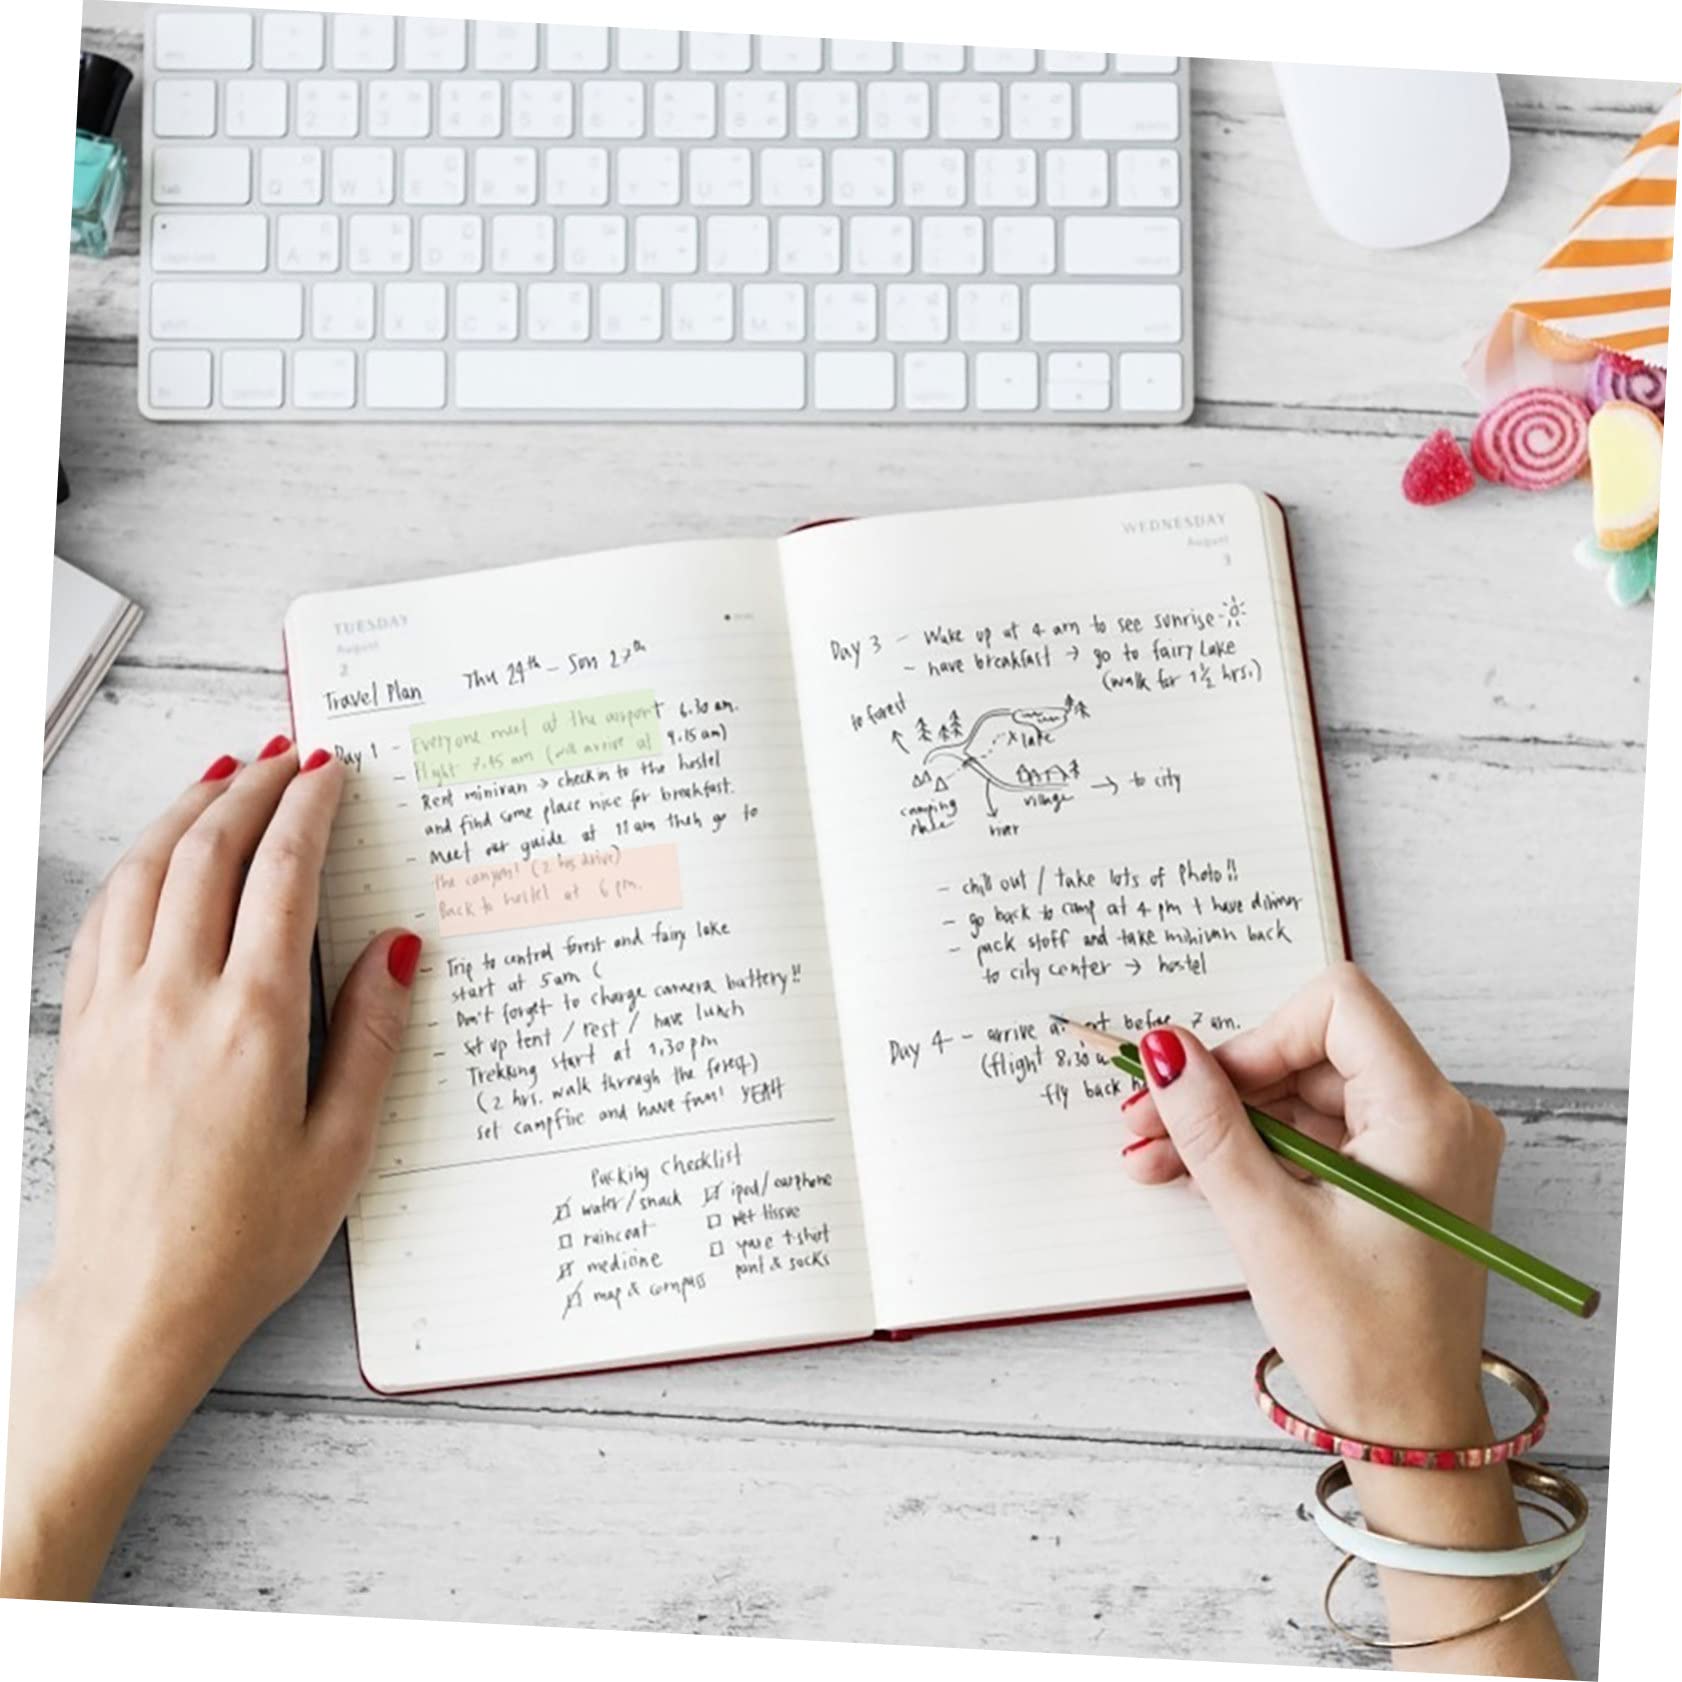 TUESDAY
August
2
Travel Plan Thu 24th – Sun 27th
Day 1 – Everyone meet at the airport 6.30 am.
– flight 7.45 am (will arrive at 9.15 am)
– Rent minivan → check in to the hostel
and find some place nice for breakfast.
– Meet our guide at 11 am then go to
the canyon! (2 hrs drive)
– Back to hostel at 6 pm.
– Trip to central forest and fairy lake
start at 5am (
– Don't forget to charge camera battery!!
– set up tent / rest / have lunch
– Trekking start at 1,30 pm
(2 hrs. walk through the forest)
set campfire and have fun! YEAH
Packing checklist
water/snack
raincoat
medicine
map & compass
ipod/earphone
wet tissue
spare t-shirt
pant & socks
WEDNESDAY
August
3
Day 3 – Wake up at 4 am to see sunrise
– have breakfast → go to fairy Lake
(walk for 1½ hrs.)
to forest
x lake
camping
place
village → to city
river
– chill out / take lots of photo!!
– go back to camp at 4 pm + have dinner
– pack stuff and take minivan back
to city center → hostel
Day 4 – arrive before 7 am.
(flight 8,30
fly back
tab
Q W E R T Y U I O P
caps lock A S D F G H J K L
shift Z X C V B N M